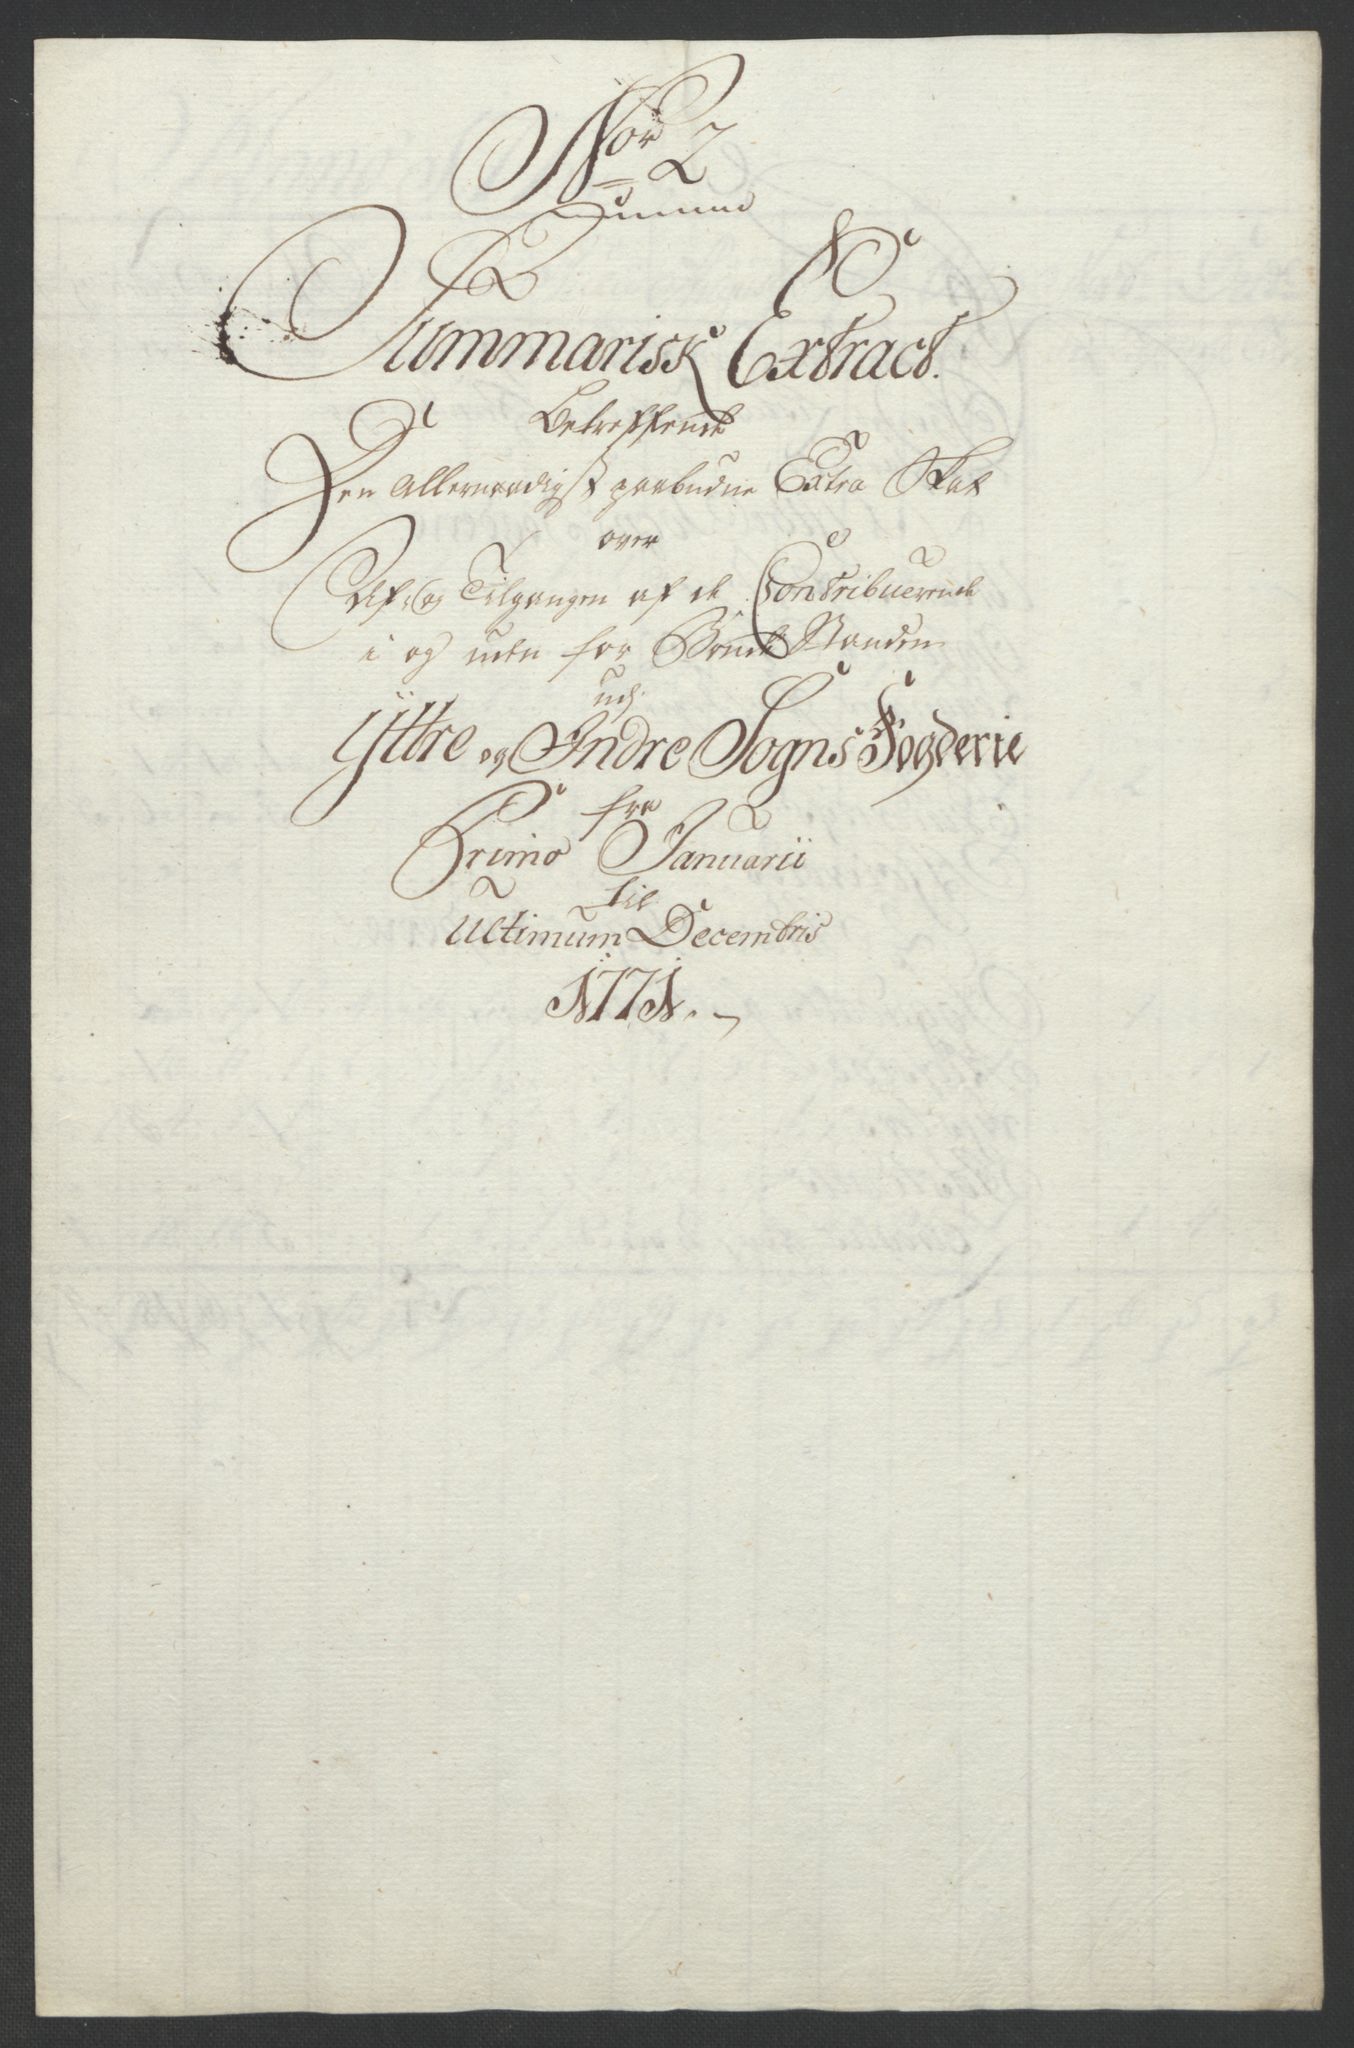 Nor 2
Summarisk Extract.
Betreffende
Den Allernaadigst paabudne Extra Skat
over
Af- og Tilgangen af de Contribuerende
i og uden for Bonde Standen
udj
Yttre og Indre Sogns Fogderie
fra
Primo Januarii
til
Ultimum Decembris
1771.